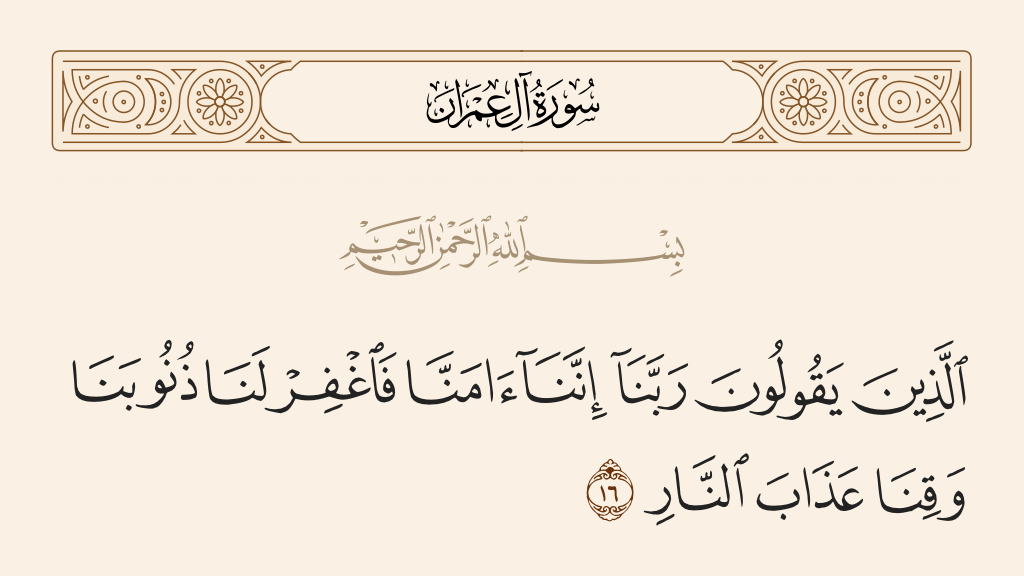 سُورَةُ آلِ عِمْرَان
بِسْمِ ٱللَّهِ ٱلرَّحْمَٰنِ ٱلرَّحِيمِ
ٱلَّذِينَ يَقُولُونَ رَبَّنَآ إِنَّنَآ ءَامَنَّا فَٱغْفِرْ لَنَا ذُنُوبَنَا
وَقِنَا عَذَابَ ٱلنَّارِ ١٦